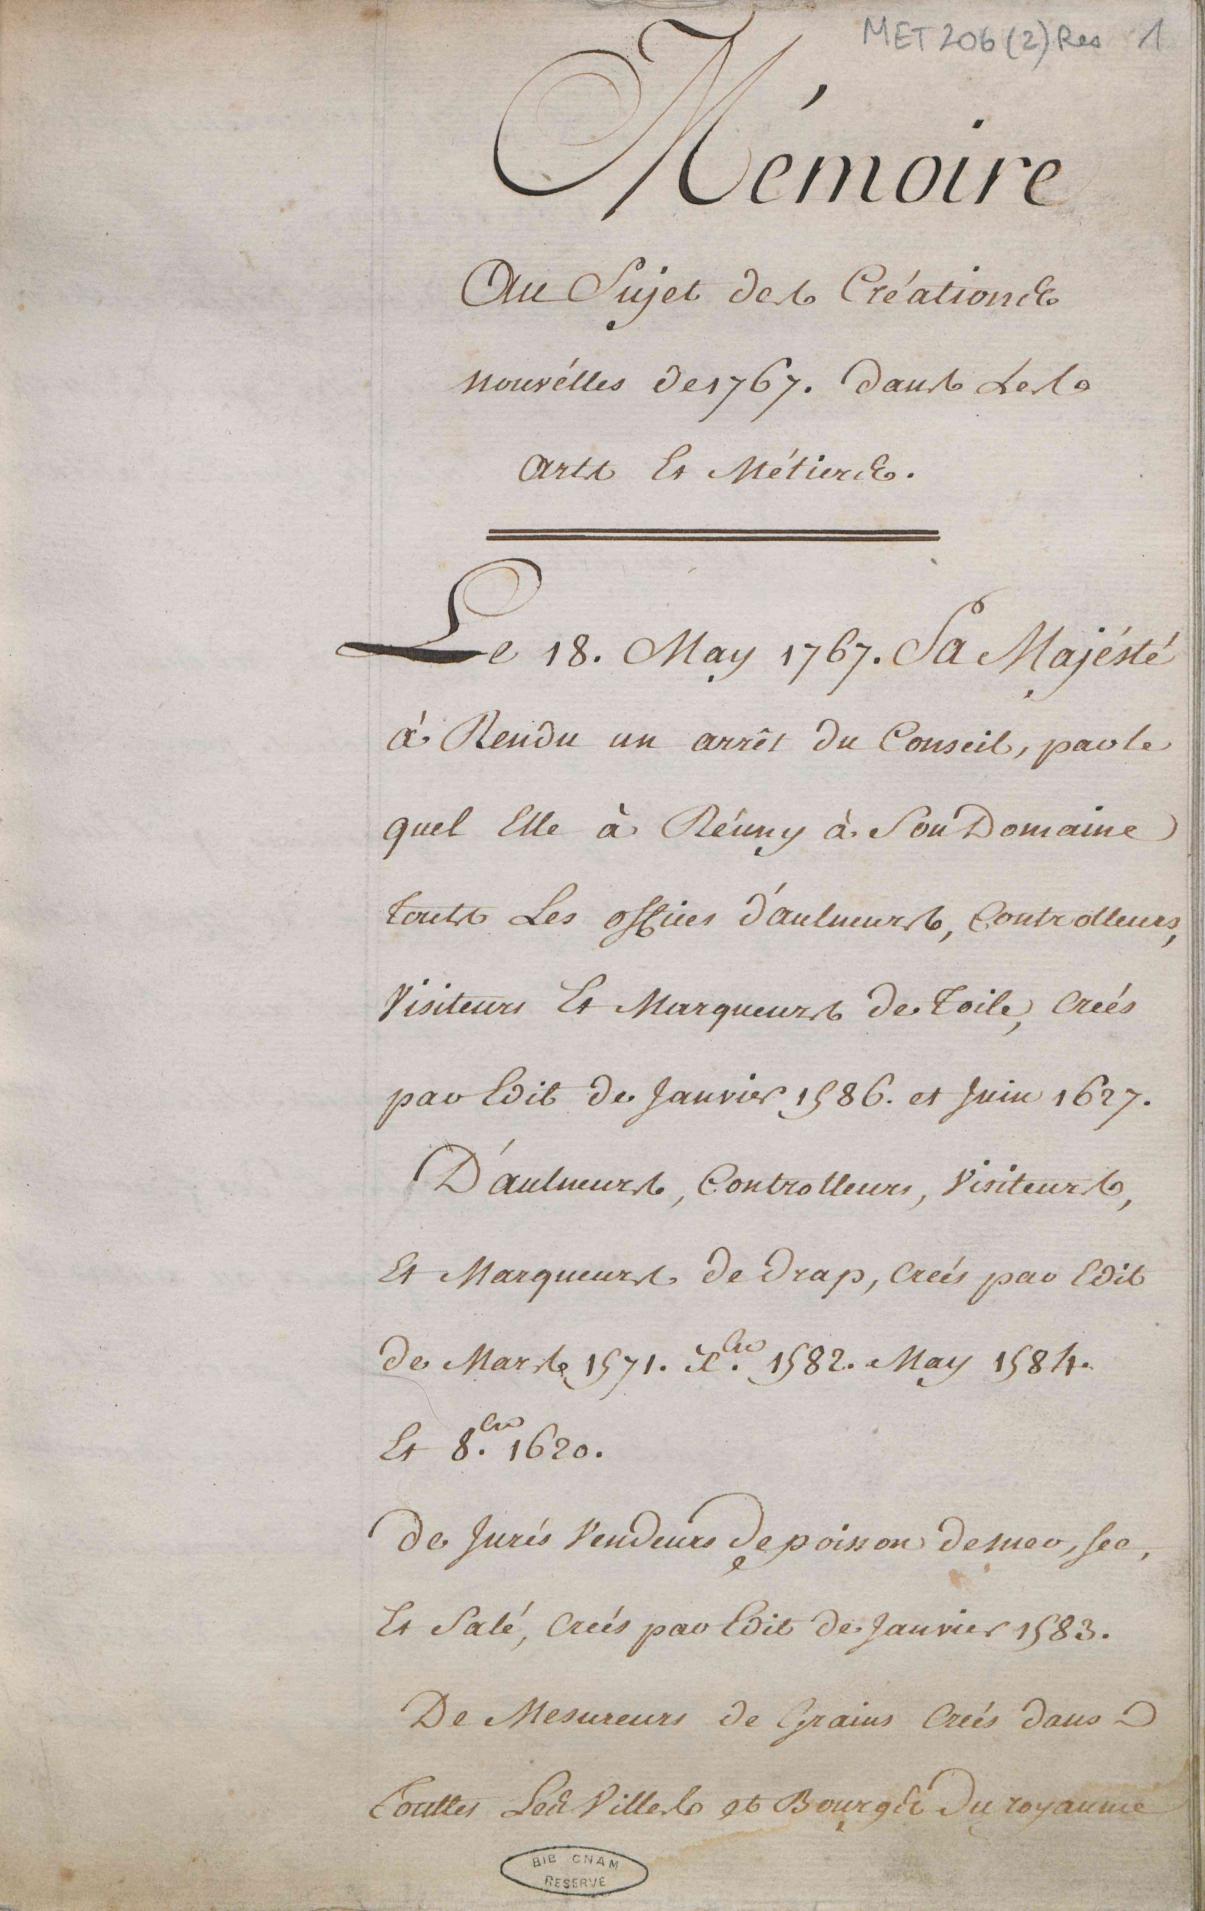 MET 206 (2) Res 1
Mémoire
Au Sujet des Créations
nouvélles de 1767. dans Les
arts Et Métiers.
Le 18. May 1767. Sa Majésté
à Rendu un arrêt du Conseil, par le
quel Elle à Réuny à Son Domaine
touts Les offices d'aulneurs, Controlleurs,
Visiteurs Et Marqueurs de Toile, Creés
par Edit de Janvier 1586. et Juin 1627.
D'aulneurs, Controlleurs, Visiteurs,
Et Marqueurs de drap, Creés par Edit
de Mars 1571. X.bre 1582. May 1584.
Et 8.bre 1620.
de Jurés Vendeurs de poisson de mer, sec,
Et Salé, Creés par Edit de Janvier 1583.
De Mesureurs de Grains Creés dans
Touttes Les Villes et Bourgs Du royaume
BIB CNAM
RESERVE